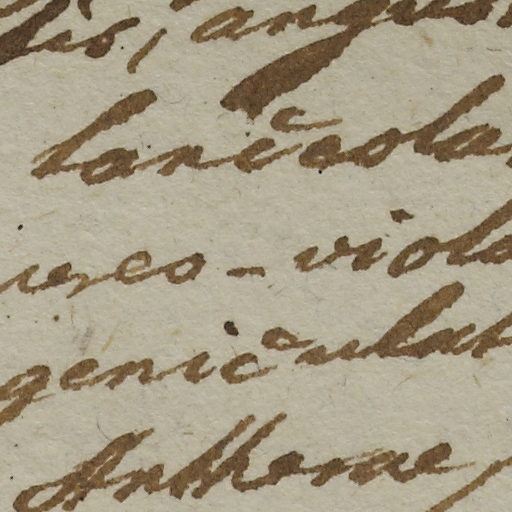 lis, angus
lanceola
ureo-viola
geniculat
Antherae,